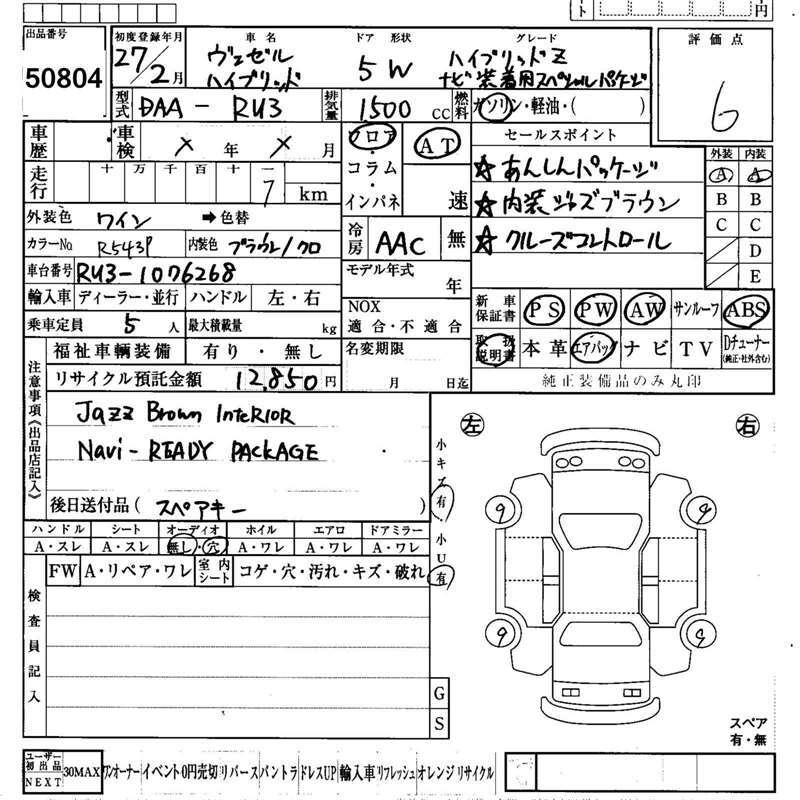 出品番号 初度登録年月 車名 ドア 形状 グレード 評価点
50804 27年/2月 ヴェゼル ハイブリッド 5W ハイブリッドZ
ナビ装着用スペシャルパッケージ
6
型式 DAA-RU3 排気量 1500cc 燃料 ガソリン・軽油・( )
車歴 車検 年 月 フロア AT セールスポイント 外装 内装
走行 十 万 千 百 十 一 コラム ☆あんしんパッケージ A A
7 km インパネ 速 ☆内装ジャズブラウン B B
外装色 ワイン ➡色替 冷房 AAC 無 ☆クルーズコントロール C C
カラーNo. R543P 内装色 ブラウン/クロ D
車台番号 RU3-1076268 モデル年式 年 E
輸入車 ディーラー・並行 ハンドル 左・右 NOX 適合・不適合 新車保証書 PS PW AW サンルーフ ABS
乗車定員 5人 最大積載量 kg 取扱説明書 本革 エアバック ナビ TV Dチューナー
(純正・社外含む)
福祉車輌装備 有り・無し 名変期限 月 日迄 純正装備品のみ丸印
リサイクル預託金額 12,850円
注意事項《出品店記入》
Jazz Brown InteRIOR
Navi-READY PACKAGE
後日送付品( スペアキー )
小キズ有・小U有
左 右
9 9
9 9
ハンドル シート オーディオ ホイル エアロ ドアミラー
A・スレ A・スレ 無し・穴 A・ワレ A・ワレ A・ワレ
FW A・リペア・ワレ 室内シート コゲ・穴・汚れ・キズ・破れ
検査員記入
G
S
スペア
有・無
ユーザー初出品 NEXT 30MAX ワンオーナー イベント 0円売切 リバース バントラ ドレスUP 輸入車 リフレッシュ オレンジ リサイクル